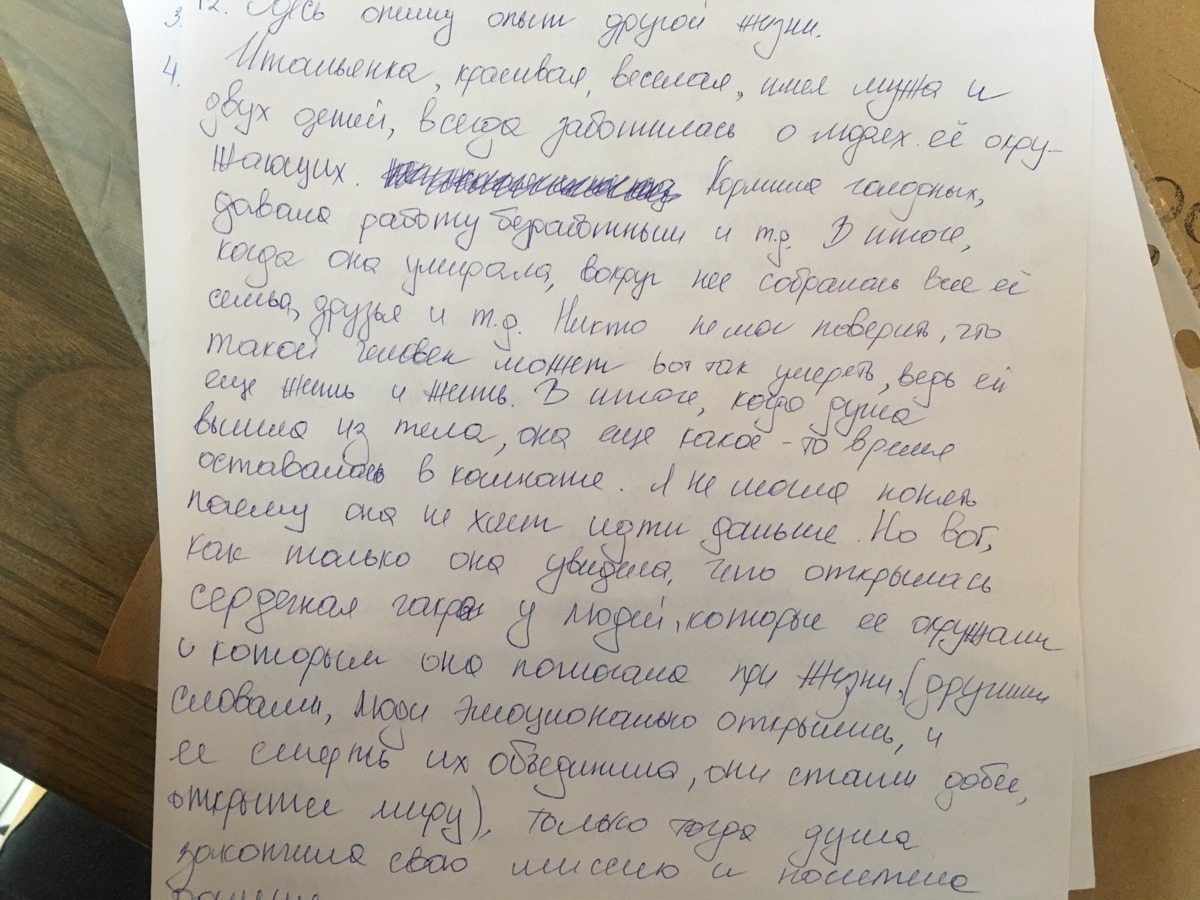 3. 12. Здесь опишу опыт другой жизни.
4. Итальянка, красивая, веселая, имея мужа и
двух детей, всегда заботилась о людях её окру-
жающих. Кормила голодных,
давала работу безработным и т.д. В итоге,
когда она умирала, вокруг нее собралась вся её
семья, друзья и т.д. Никто не мог поверить, что
такой человек может вот так умереть, ведь ей
еще жить и жить. В итоге, когда душа
вышла из тела, она еще какое-то время
оставалась в комнате. Я не могла понять
почему она не хочет идти дальше. Но вот,
как только она увидела, что открылась
сердечная чакра у людей, которые ее окружали
и которым она помогала при жизни, (другими
словами, люди эмоционально открылись, и
ее смерть их объединила, они стали добее,
открытее миру), только тогда душа
закончила свою миссию и полетела
дальше